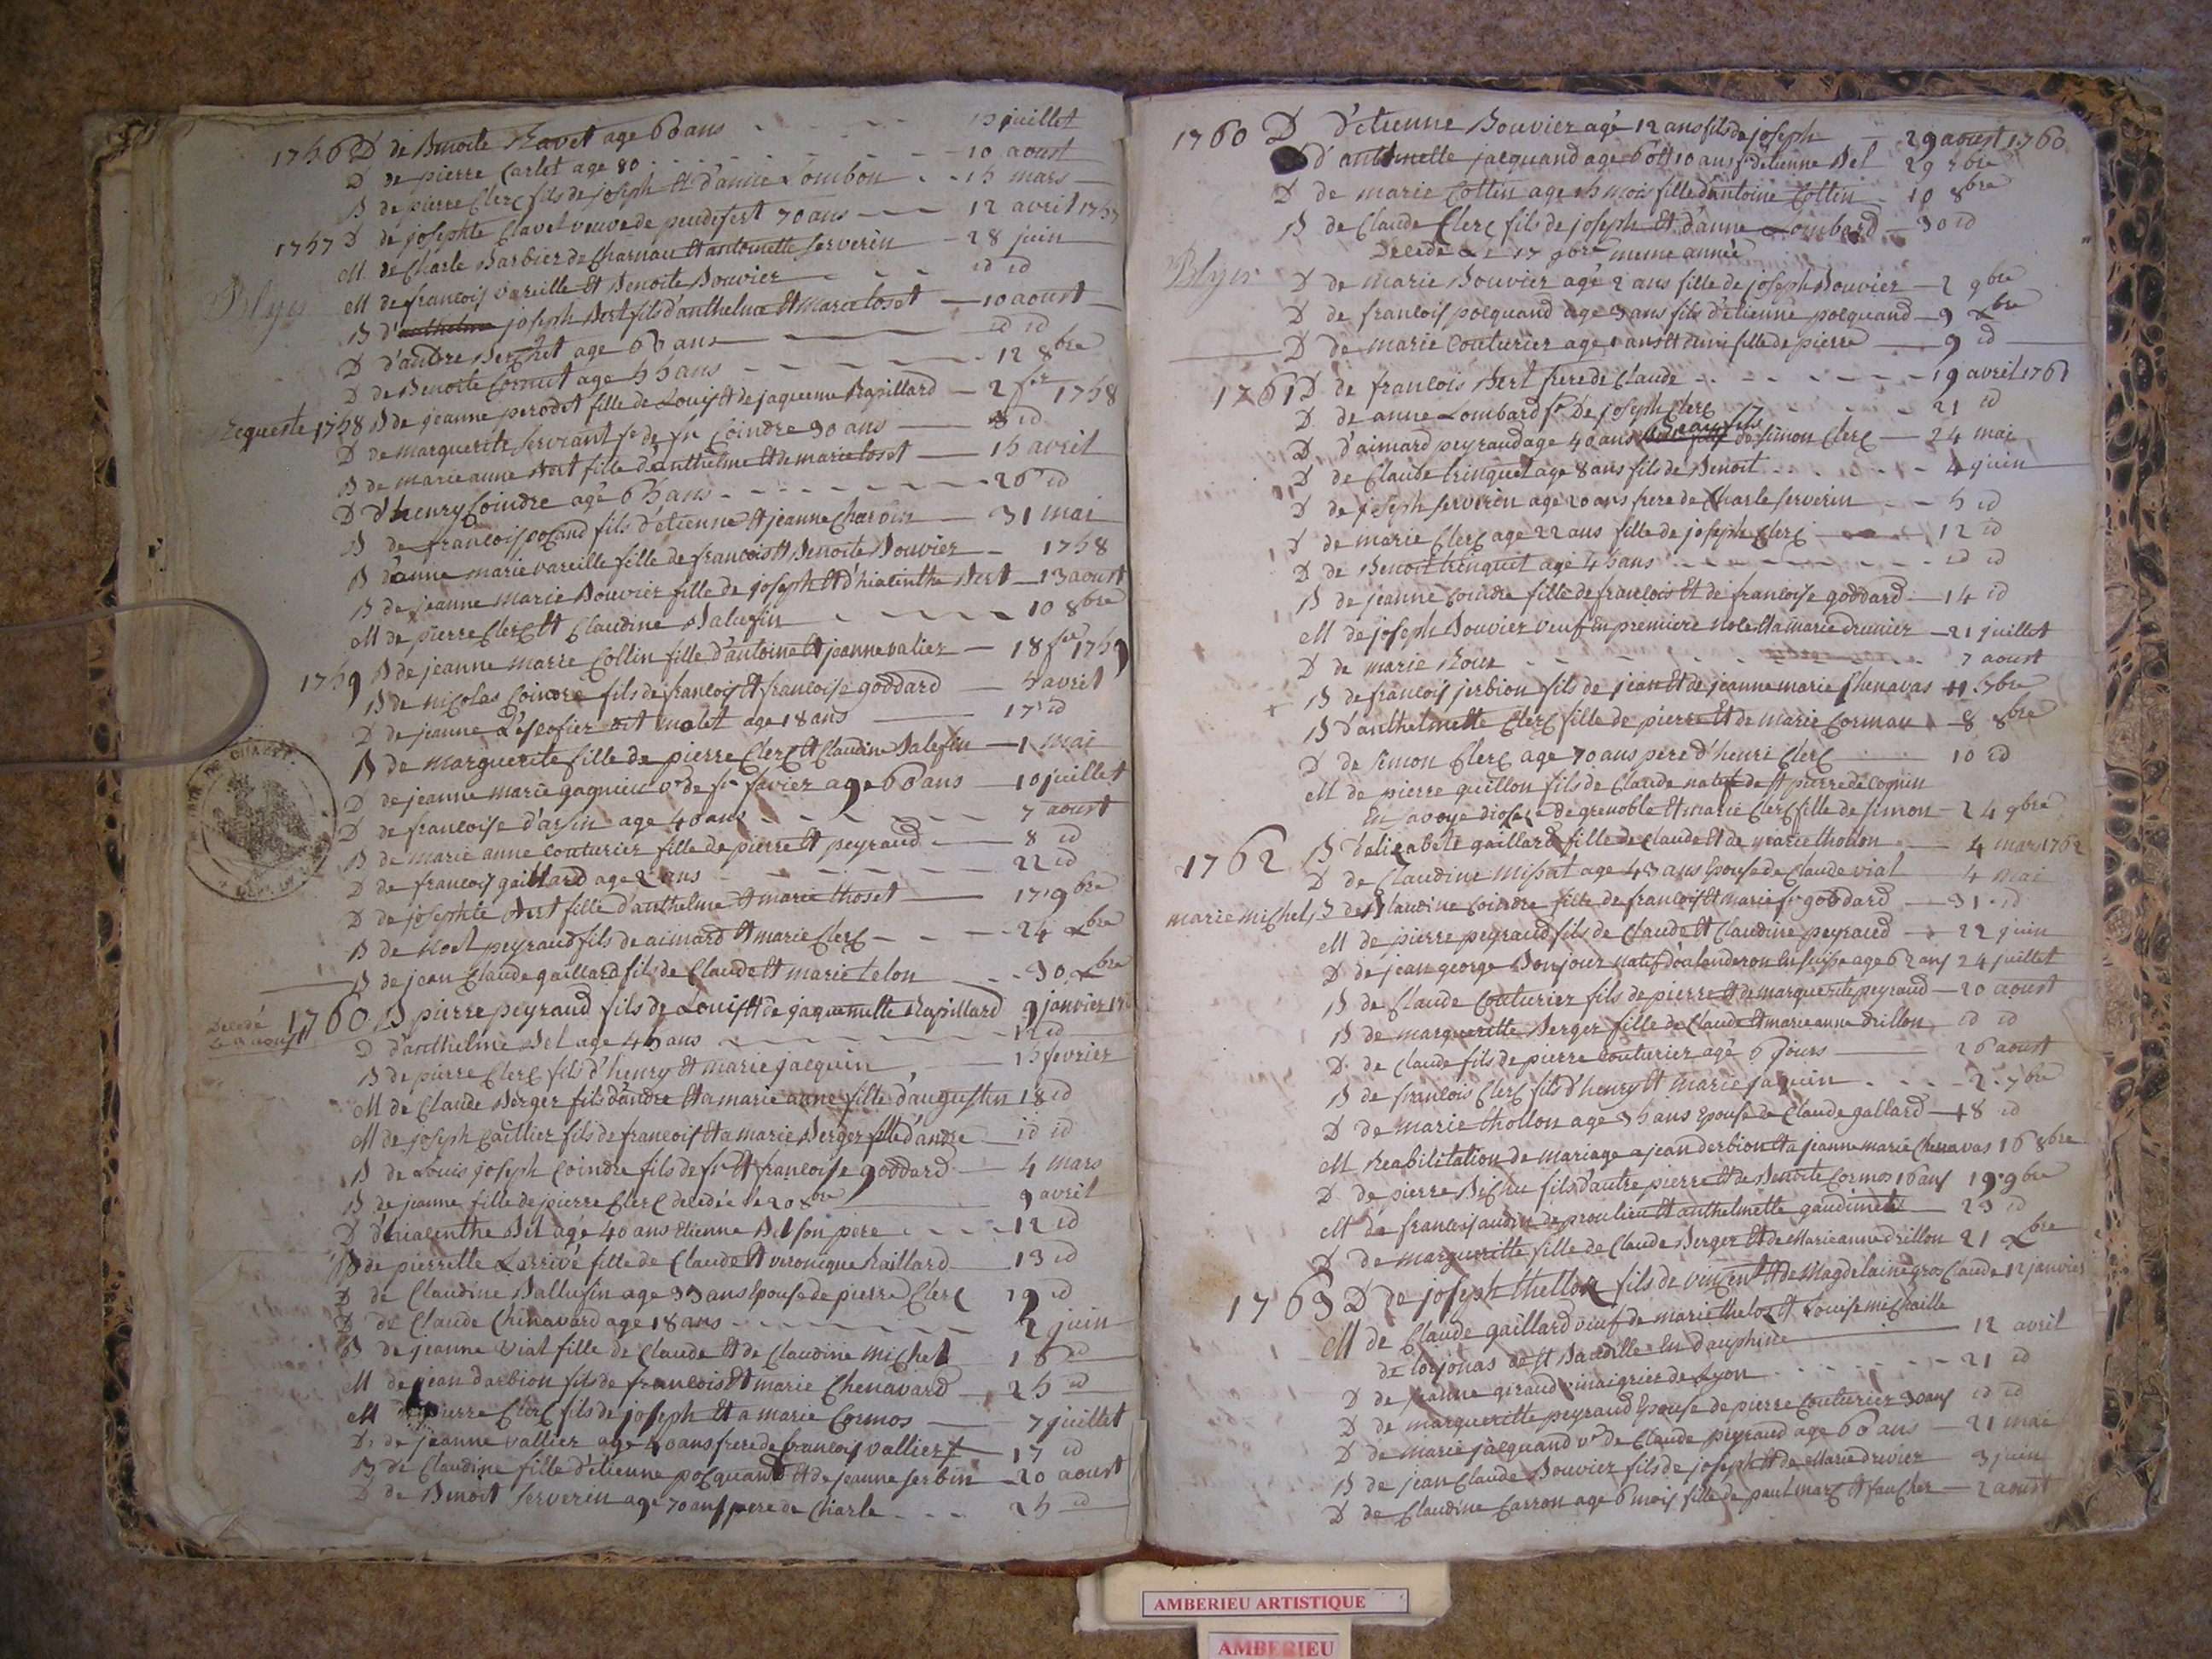 1756 D de Benoite Ravet age 60 ans - - - 15 juillet
D de pierre Carlet age 80 - - - 10 aoust
B de pierre Clerc fils de joseph et d'anne Lombon - - 15 mars
1757 D de josephte Clavel veuve de peudefert 70 ans - - 12 avril 1757
M de Charle Barbier de Charnau et antoinette Serverin - 28 juin
Blyes
M de francois vareille et Benoite Bouvier - - - id id
B d' joseph Bert fils d'anthelme et marie toset - 10 aoust
D d'andre Berchet age 60 ans - id id
D de Benoite Cornut age 55 ans - - - 12 8bre
Requeste 1758 B de jeanne perodet fille de Louis et de jaqueme Rapillard - 2 fer 1758
D de marguerite serviant fe de fr Coindre 30 ans - 8 id
B de marie anne Bert fille d'anthelme et de marie toset - 15 avril
D d'henry Coindre age 65 ans - - - 26 id
B de francois pocand fils d'etienne et jeanne Charvin - 31 mai
B d'anne marie vareille fille de francois et Benoite Bouvier - 1758
B de jeanne Marie Bouvier fille de joseph et d'hiacinthe Bert - 13 aoust
M de pierre Clerc et Claudine Balufin - - - 10 8bre
1759 B de jeanne marie Collin fille d'antoine et jeanne valier - 18 fer 1759
B de nicolas Coindre fils de francois et francoise goddard - 4 avril
D de jeanne L'escofier dit molet age 18 ans - 17 id
B de Marguerite fille de pierre Clerc et Claudine Balefin - 1 mai
D de jeanne marie gagnieu ve de fr favier age 60 ans - 10 juillet
D de francoise d'arsin age 40 ans - - - 7 aoust
B de marie anne Couturier fille de pierre et peyraud - 8 id
D de francois gaillard age 2 ans - - - 22 id
D de josephte Bert fille d'anthelme et marie thoset - 17 9bre
B de Noel peyraud fils de aimard et marie Clerc - - - 24 xbre
B de jean Claude gaillard fils de Claude et marie telon - - 30 xbre
Decedé
1760 B pierre peyraud fils de Louis et de jaquemette Rapillard 9 janvier
D d'anthelme Bel age 45 ans - - - 12 id
B de pierre Clerc fils d'henry et marie jacquin - 15 fevrier
M de Claude Berger fils d'andre et a marie anne fille d'augustin 18 id
M de joseph Caillier fils de francois et a marie Berger fille d'andre - id id
B de Louis joseph Coindre fils de fr et francoise goddard - 4 mars
B de jeanne fille de pierre Clerc decedée le 20 8bre - 9 avril
D d'hiacenthe Bel agé 40 ans Etienne Bel son pere - - - 12 id
B de pierrette Larrivé fille de Claude et veronique Raillard - 13 id
D de Claudine Ballufin age 33 ans epouse de pierre Clerc 19 id
D de Claude Chenavard age 18 ans - - - 2 juin
B de jeanne vial fille de Claude et de Claudine Michel - 16 id
M de jean darbion fils de francois et marie Chenavard - 25 id
M de pierre Clerc fils de joseph et a marie Cormos - 7 juillet
D de jeanne vallier age 40 ans frere de francois vallier - 17 id
B de Claudine fille d'etienne pocquand et de jeanne serbin - 20 aoust
D de Benoit Serverin age 70 ans pere de Charle - - - 25 id
1760 D d'etienne Bouvier agé 12 ans fils de joseph - 29 aoust 1760
d'anthmelle jacquand age 60 et 10 ans fe d'etienne Bel 29 7bre
D de marie Cottin age 15 mois fille d'antoine Cottin - 10 8bre
B de Claude Clerc fils de joseph et d'anne Lombard - 30 id
Decedé Le 17 9bre meme année
Blyes
D de marie Bouvier agé 2 ans fille de joseph Bouvier - 2 9bre
D de francois pocquand age 3 ans fils d'etienne pocquand - 9 xbre
D de marie Couturier age 1 ans et demi fille de pierre - 9 id
1761 D de francois Bert frere de Claude - - - 19 avril 1761
D de anne Lombard fe De joseph Clerc - - - 21 id
D d'aimard peyraud age 40 ans Beau fils de Simon Clerc - 24 mai
D de Claude trinquet age 8 ans fils de Benoit - - - 4 juin
D de joseph serverin age 20 ans frere de Charle serverin - - 5 id
D de marie Clerc age 22 ans fille de joseph Clerc - 12 id
D de Benoit trinquet age 45 ans - - - id id
B de jeanne Coindre fille de francois et de francoise goddard - 14 id
M de joseph Bouvier veuf en premiere noce et a marie druvier - 21 juillet
D de marie Roux - - - 7 aoust
B de francois jerbion fils de jean et de jeanne marie Chenavas 11 7bre
B d'anthelmette Clerc fille de pierre et de Marie Cormau - 8 8bre
D de Simon Clerc age 70 ans pere d'henri Clerc - 10 id
M de pierre guillon fils de Claude natif de st pierre de Cognin
En savoye diocese de grenoble et marie Clerc fille de Simon - 24 9bre
1762 B d'alizabete gaillard fille de Claude et de marie thollon - 4 mars 1762
D de Claudine Missat age 43 ans Epouse de Claude vial - 4 mai
marie michel, B de Claudine Coindre fille de francois et marie fr goddard - 31 id
M de pierre peyraud fils de Claude et Claudine peyraud - 22 juin
D de jean george Bonjour natif d'alanderon En suisse age 62 ans 24 juillet
B de Claude Couturier fils de pierre et de marguerite peyraud - 20 aoust
B de margueritte Berger fille de Claude et marie anne drillon id id
D de Claude fils de pierre Couturier agé 6 jours - 26 aoust
B de francois Clerc fils d'henry et Marie jaquin - - - 2 7bre
D de marie thollon age 35 ans epouse de Claude gallard - 18 id
M Reabilitation de mariage a jean derbion et a jeanne marie Chenavas 16 8bre
D de pierre Bichu fils d'autre pierre et de Benoite Cormos 16 ans 19 9bre
M de francois audin de proulieu et anthelmette gaudimet - 23 id
D de margueritte fille de Claude Berger et de Marie anne drillon 21 xbre
1763 D de joseph thellon fils de vincent et de Magdelaine gros Claude 12 janvier
M de Claude gaillard veuf de marie thelon et Louise michaille
de loijonas de st Baudille En dauphine - 12 avril
D de jeanne giraud vinaigrier de Lyon - - - 21 id
D de margueritte peyraud Epouse de pierre Couturier 30 ans id id
D de marie jacquand ve de Claude peyraud age 60 ans - 21 mai
B de jean Claude Bouvier fils de joseph et de Marie druvier 3 juin
D de Claudine Carron age 6 mois fille de paul marc et faucher - 2 aoust
AMBERIEU ARTISTIQUE
AMBERIEU